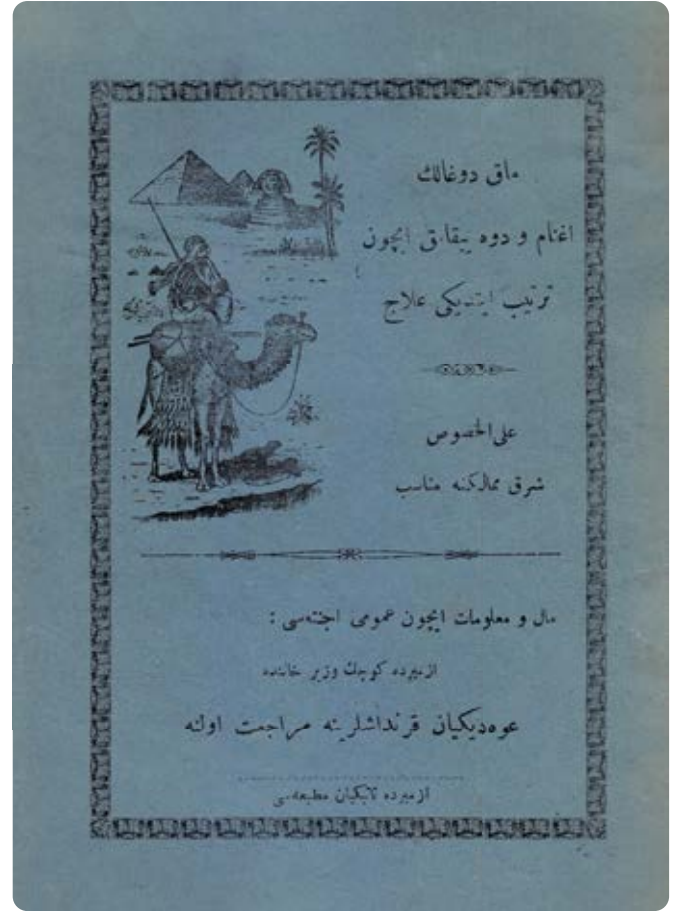 ماق دوغالك
اغنام و دوه ييقامق ايچون
ترتيب ايتديكى علاج
على الخصوص
شرق ممالكنه مناسب
مال و معلومات ايچون عمومى اجنته‌سى :
ازميرده كوچك وزير خاننده
عوه‌ديكيان قرنداشلرينه مراجعت اولنه
ازميرده تاتيكيان مطبعه‌سى